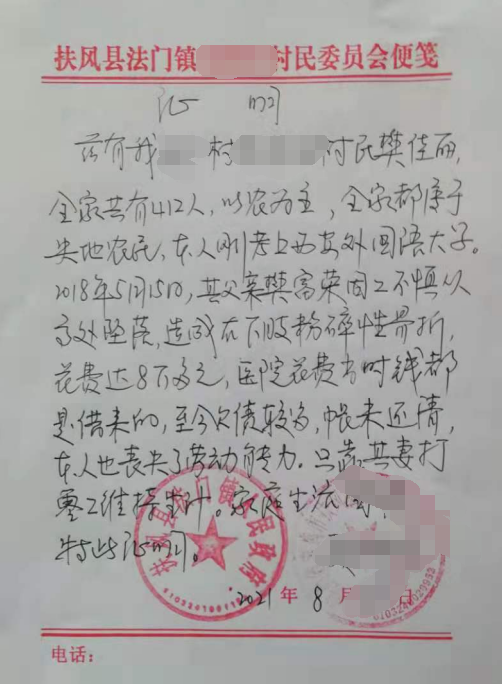 扶风县法门镇村民委员会便笺
证 明
兹有我 村 村民樊佳丽,
全家共有4口人,以农为主,全家都属于
失地农民,本人刚考上西安外国语大学。
2018年5月15日,其父亲樊富荣因工不慎从
高处坠落,造成下肢粉碎性骨折,
花费达8万多元,医院花费当时钱都
是借来的,至今欠债较多,帐未还清,
本人也丧失了劳动能力。只靠其妻打
零工维持生计。家庭生活困
特此证明。
扶风县法门镇人民政府
2021年8月 日
电话: